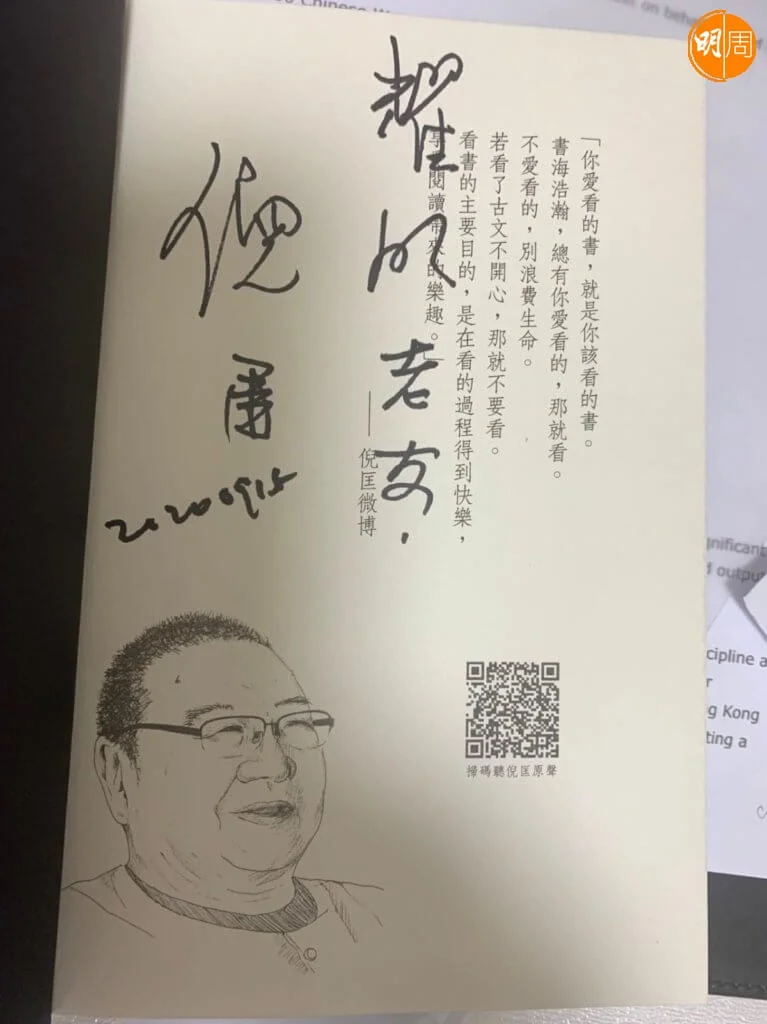 明周
「你愛看的書，就是你該看的書。
書海浩瀚，總有你愛看的，那就看。
不愛看的，別浪費生命。
若看了古文不開心，那就不要看。
看書的主要目的，是在看的過程得到快樂，
享受閱讀帶來的樂趣。」
——倪匡微博
耀明老友，
倪匡
20200915
掃碼聽倪匡原聲
Chinese
on
gnificant
output
cipline a
g Kong
ting a